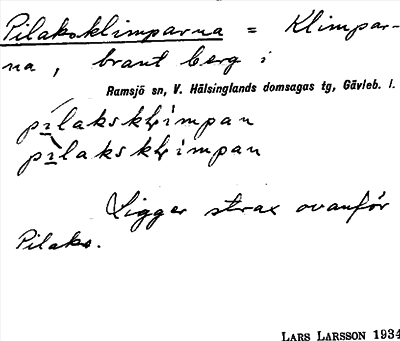 Pilaksklimparna = Klimpar-
na, brant berg i
Ramsjö sn, V. Hälsinglands domsagas tg, Gävleb. l.
pílaksklimpan
pìlaksklimpan
Ligger strax ovanför
Pilaks.
LARS LARSSON 1934